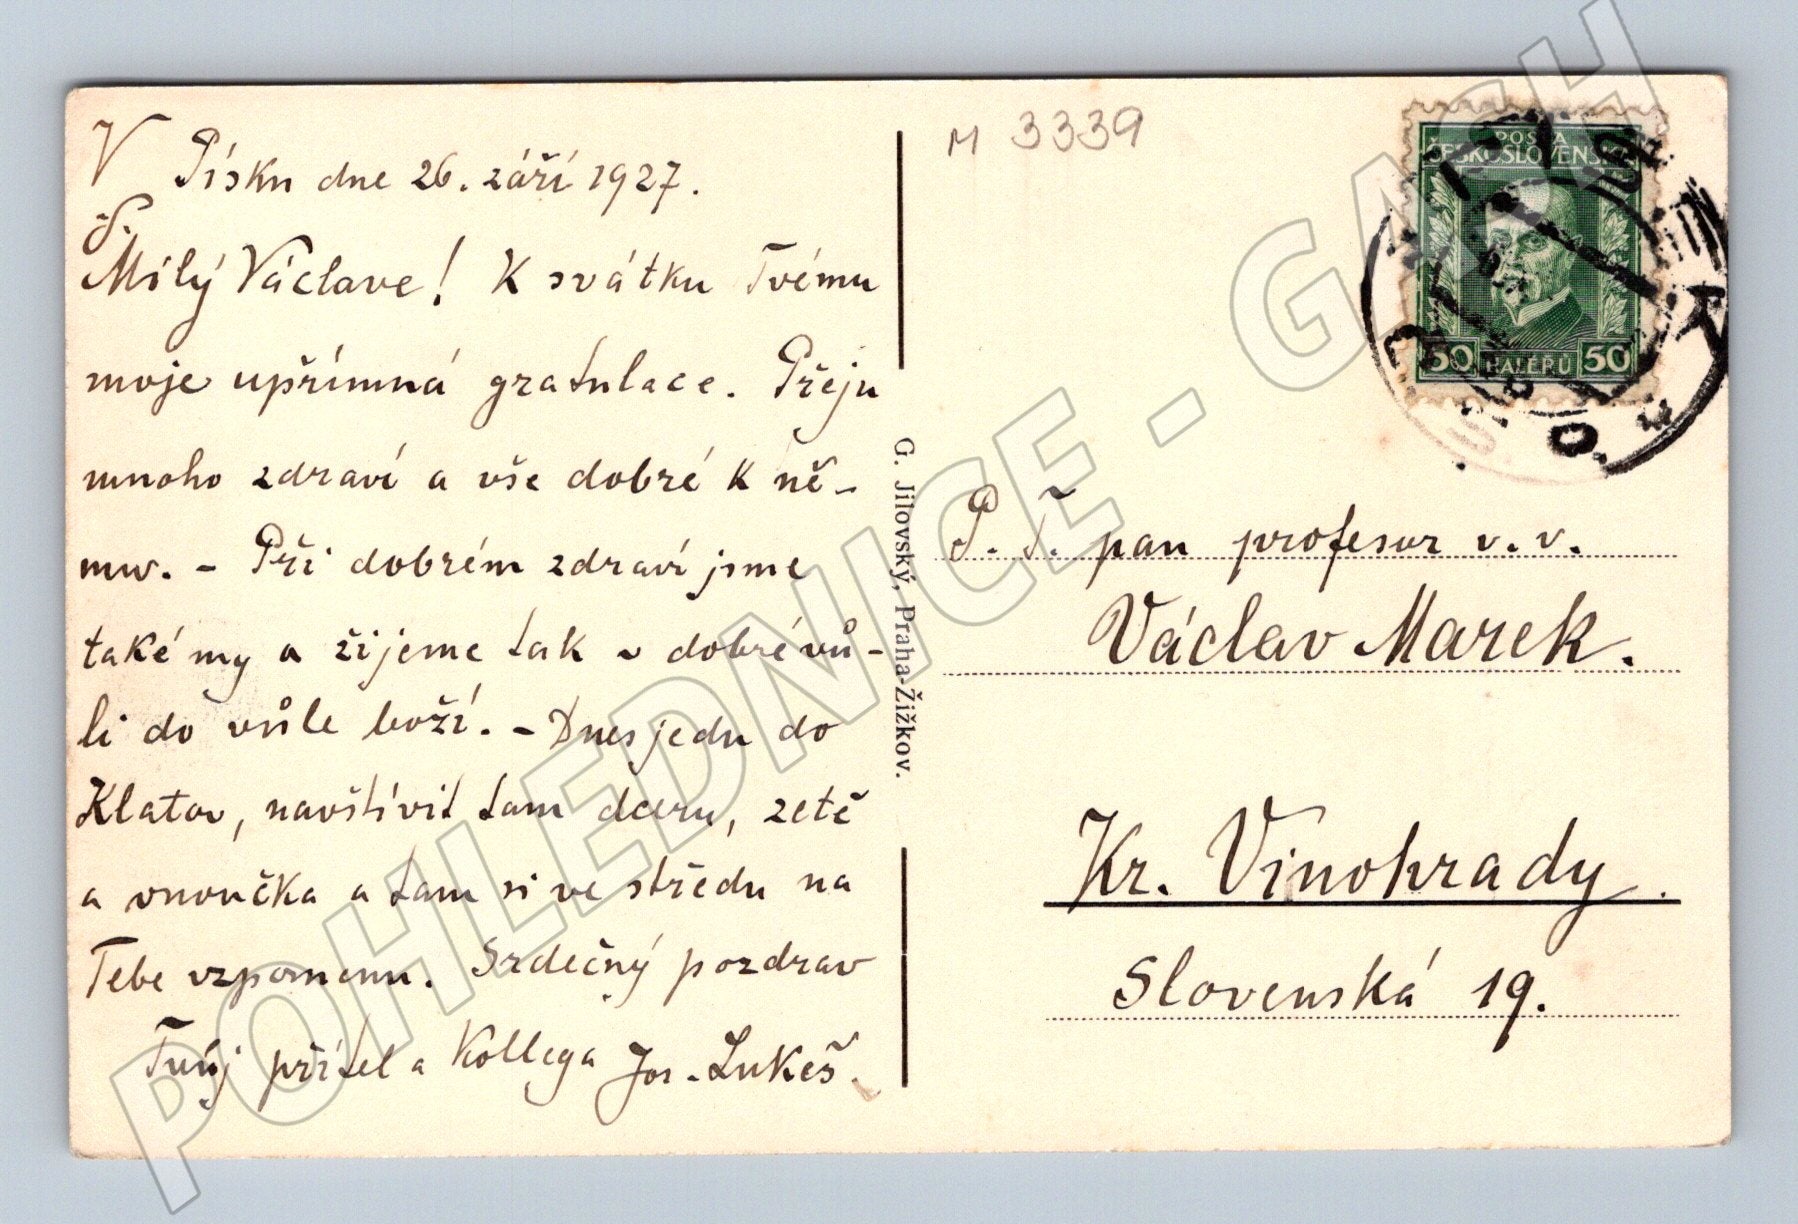 V Písku dne 26. září 1927.
Milý Václave! K svátku Tvému
moje upřímná gratulace. Přeju
mnoho zdraví a vše dobré k ně-
mu. - Při dobrém zdraví jsme
také my a žijeme tak v dobré vů-
li do vůle boží. - Dnes jedu do
Klatov, navštívit tam dceru, zetě
a vnoučka a tam si ve středu na
Tebe vzpomenu. Srdečný pozdrav
Tvůj přítel a Kollega Jos. Lukeš.
G. Jilovský, Praha-Žižkov.
M 3339
POŠTA
ČESKOSLOVENSKÁ
50 HALÉŘŮ 50
P. T. pan profesor v. v.
Václav Marek.
Kr. Vinohrady.
Slovenská 19.
POHLEDNICE - GASH